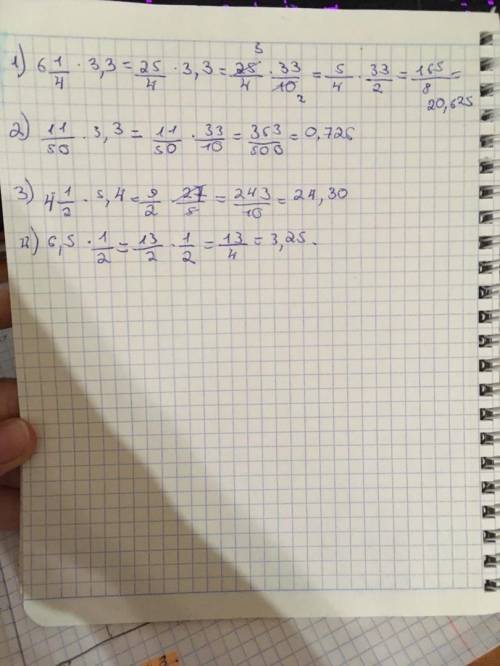 1) 6 1/4 · 3,3 = 25/4 · 3,3 = 25/4 · 33/10 = 5/4 · 33/2 = 165/8 =
5
2
20,625
2) 11/50 · 3,3 = 11/50 · 33/10 = 363/500 = 0,726
3) 4 1/2 · 5,4 = 9/2 · 27/5 = 243/10 = 24,30
4) 6,5 · 1/2 = 13/2 · 1/2 = 13/4 = 3,25.